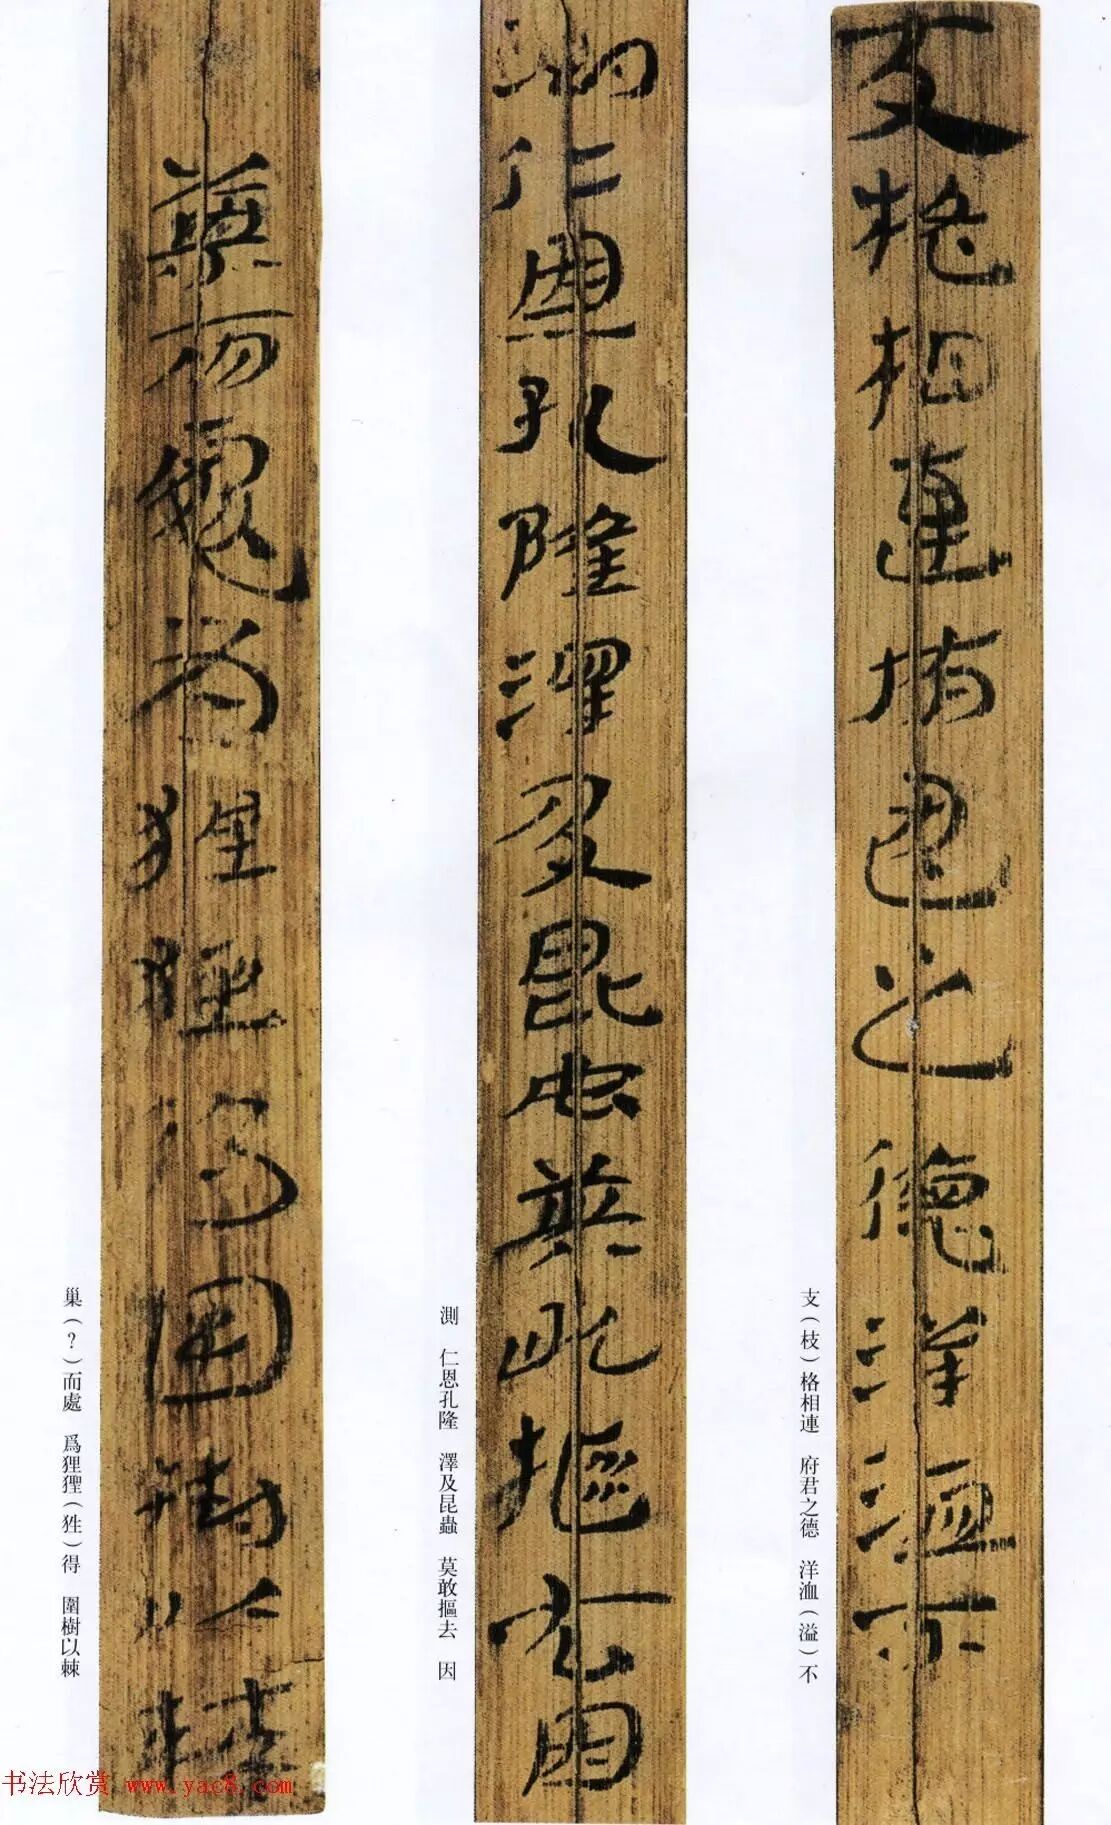 支格相連府君之德洋洫不
支（枝）格相連　府君之德　洋洫（溢）不
測仁恩孔隆澤及昆虫莫敢摳去因
測　仁恩孔隆　澤及昆蟲　莫敢摳去　因
而處爲狸狌得圍樹以棘
巢（？）而處　爲狸貍（狌）得　圍樹以棘
书法欣赏 www.yac8.com